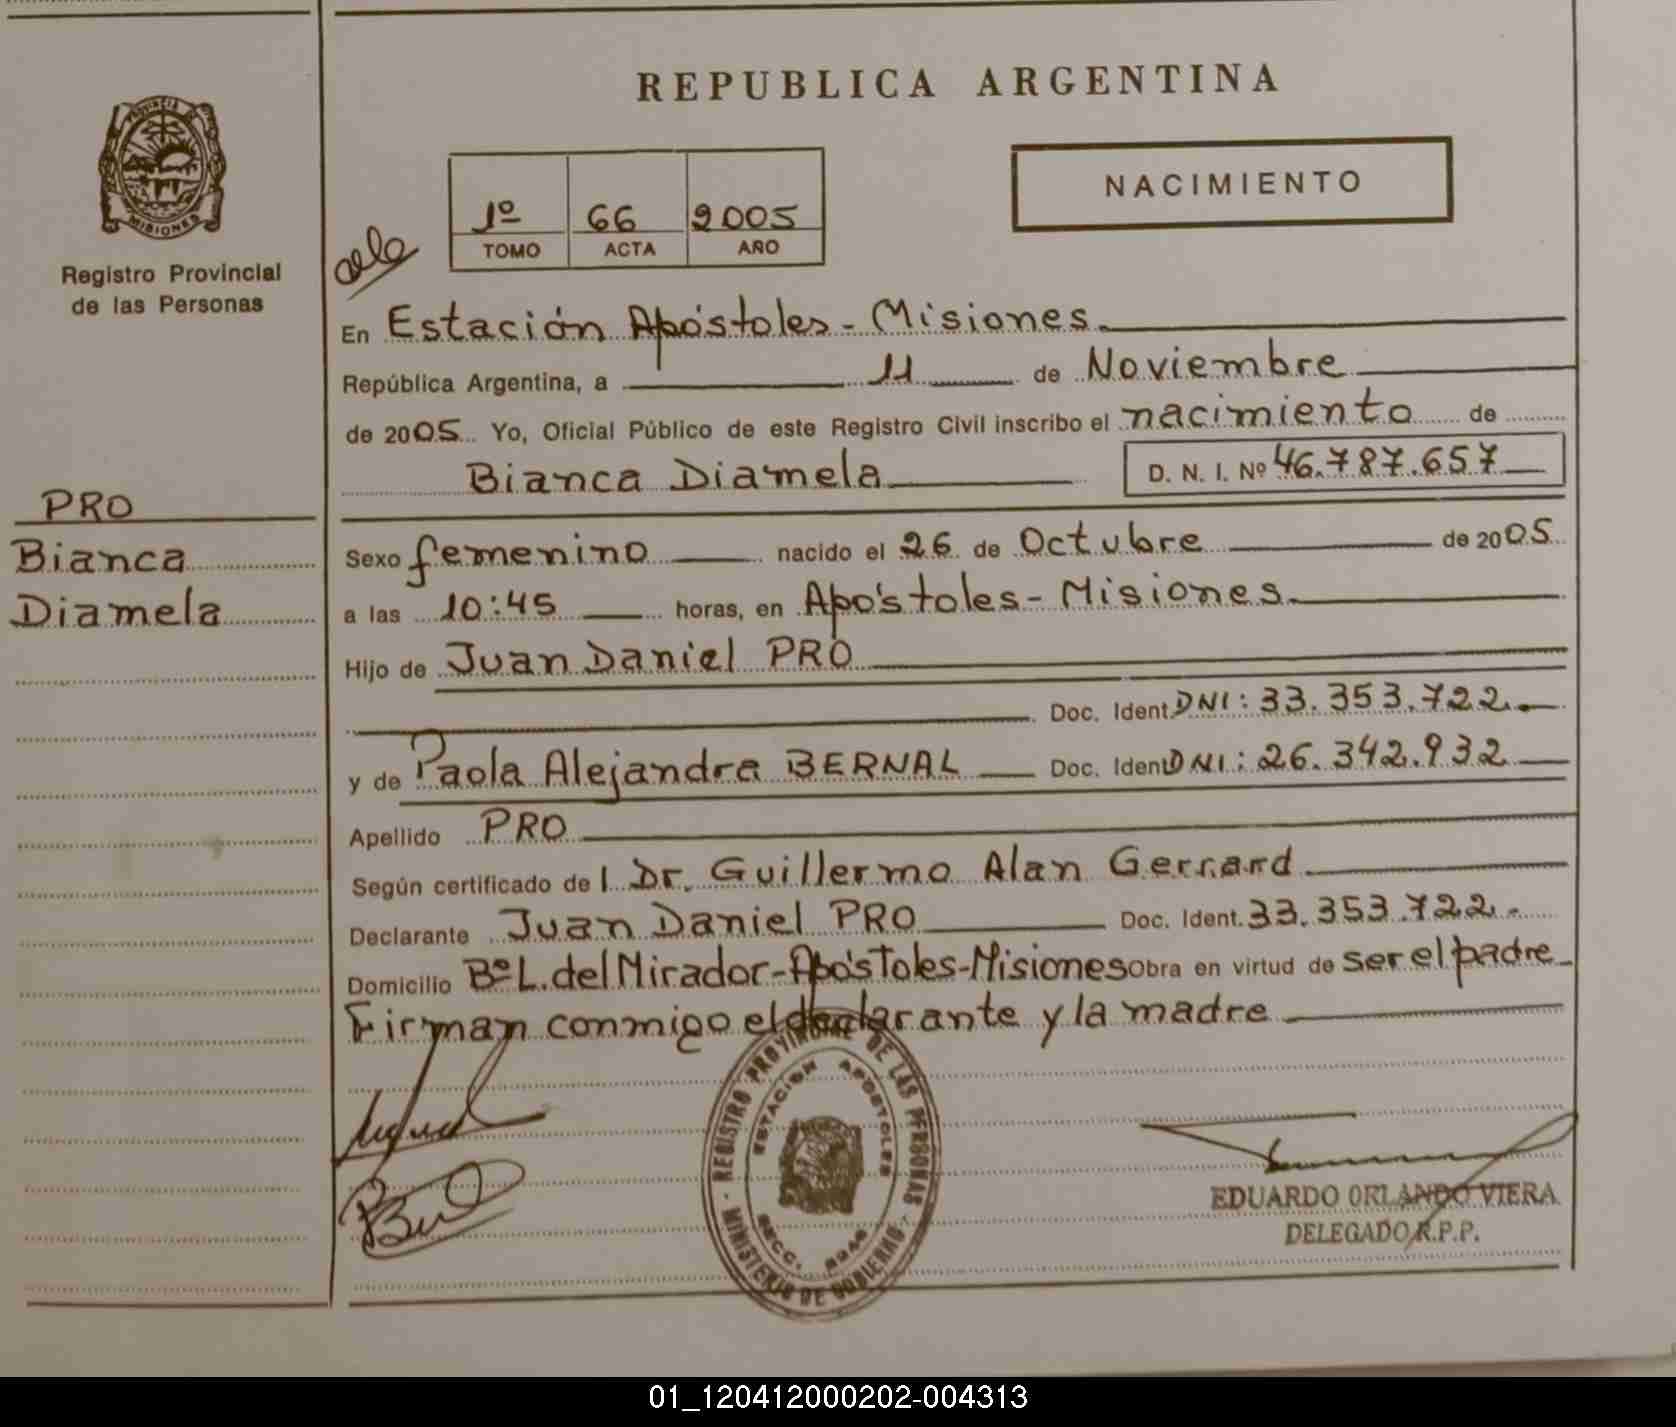 REPUBLICA ARGENTINA
PROVINCIA
MISIONES
Registro Provincial
de las Personas
NACIMIENTO
1º 66 2005
TOMO ACTA AÑO
En Estación Apóstoles - Misiones
República Argentina, a 11 de Noviembre
de 2005 Yo, Oficial Público de este Registro Civil inscribo el nacimiento de
Bianca Diamela D. N. I. Nº 46.787.657
PRO
Bianca
Diamela
Sexo femenino nacido el 26 de Octubre de 2005
a las 10:45 horas, en Apóstoles - Misiones
Hijo de Juan Daniel PRO
Doc. Ident. DNI: 33.353.722.
y de Paola Alejandra BERNAL Doc. Ident DNI: 26.342.932
Apellido PRO
Según certificado de l Dr. Guillermo Alan Gerrard
Declarante Juan Daniel PRO Doc. Ident. 33.353.722.-
Domicilio Bº L. del Mirador - Apóstoles - Misiones Obra en virtud de ser el padre
Firman conmigo el declarante y la madre
REGISTRO PROVINCIAL DE LAS PERSONAS
ESTACION APOSTOLES
SECC.
MINISTERIO DE GOBIERNO
EDUARDO ORLANDO VIERA
DELEGADO R.P.P.
01_120412000202-004313